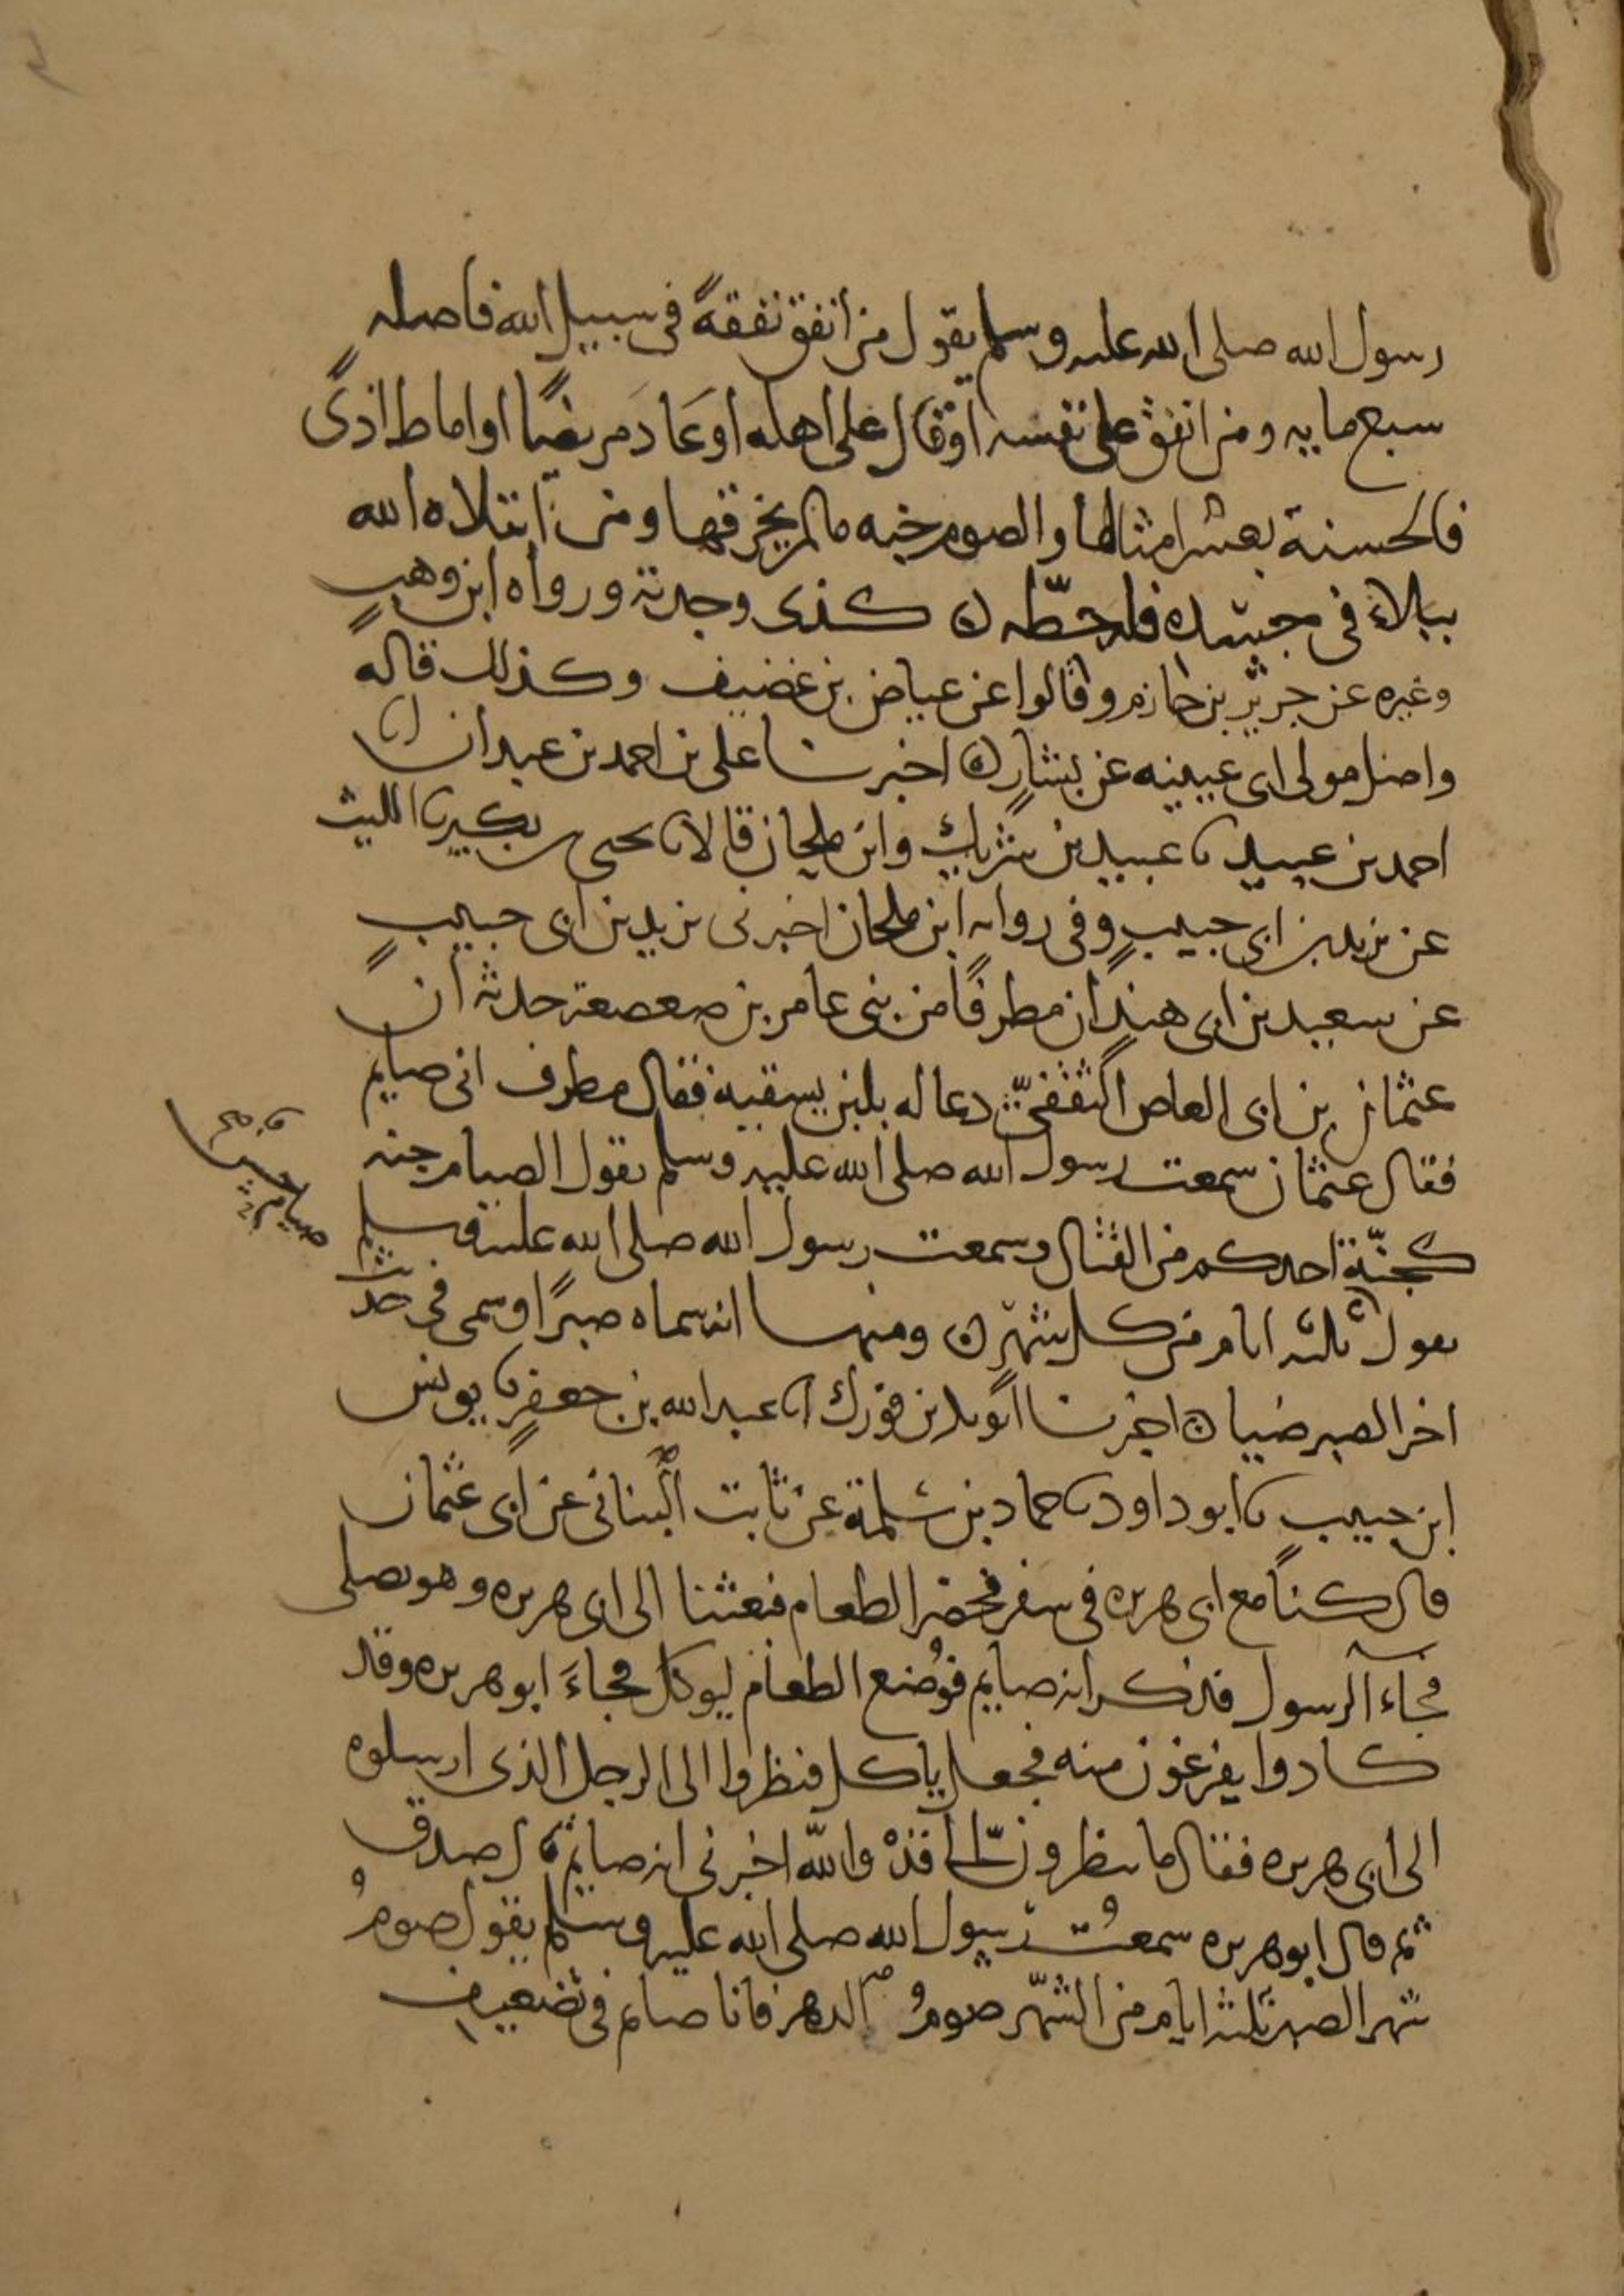 رسول الله صلى الله عليه وسلم يقول من أنفق نفقةً في سبيل الله فاصله
سبع مايه ومن انفق على نفسه اوقال على اهله اوعَادَ مريضًا او اماط اذىً
فالحسنة بعشر امثالها والصوم جنه مالم يخرقها ومن ابتلاه الله
ببلاءٍ في جسده فله حطّه ن كذى وجدته ورواه ابن وهبٍ
وغيره عن جرير بن حازم وقالوا عن عياض بن غضيف وكذلك قاله
واصل مولى ابى عيينه عن بشارٍ ن اخبرنا على بن احمد بن عبدان انا
احمد بن عبيد نا عبيد بن شريك وابن ملحان قالا نا يحيى بن بكير نا الليث
عن يزيد بن ابى حبيبٍ وفى روايه ابن ملحان اخبرنى يزيد بن ابى حبيبٍ
عن سعيد بن ابى هندٍ ان مطرفًا من بنى عامر بن صعصعة حدثه ان
عثمان بن ابى العاص الثقفىّ دعا له بلبن يسقيه فقال مطرف انى صايم
فقال عثمان سمعت رسول الله صلى الله عليه وسلم يقول الصيام جنه
كجنّة احدكم من القتال وسمعت رسول الله صلى الله عليه وسلم
يقول ثلثه ايام من كل شهرٍ ن ومنها انه سماه صبرًا وسمى فى حديث
اخر الصبر ضيا ن اخبرنا ابو بكر بن فورك انا عبد الله بن جعفرٍ نا يونس
ابن حبيبٍ نا ابو داود نا حماد بن سلمة عن ثابت البنانى عن ابى عثمان
قال كنا مع ابى هريره فى سفر فحضر الطعام فبعثنا الى ابى هريره وهو يصلى
فجاء الرسول فذكر انه صايم فوُضع الطعام ليوكل فجاءَ ابو هريره وقد
كادوا يفرغون منه فجعل ياكل فنظروا الى الرجل الذى ارسلوه
الى ابى هريره فقال ما تنظرون الىّ قدْ والله اخبرنى انه صايم قال صدق
ثم قال ابو هريره سمعتُ رسول الله صلى الله عليه وسلم يقول صومُ
شهر الصبر وثلثه ايام من الشهر صومُ الدهر فانا صايم فى تضعيف